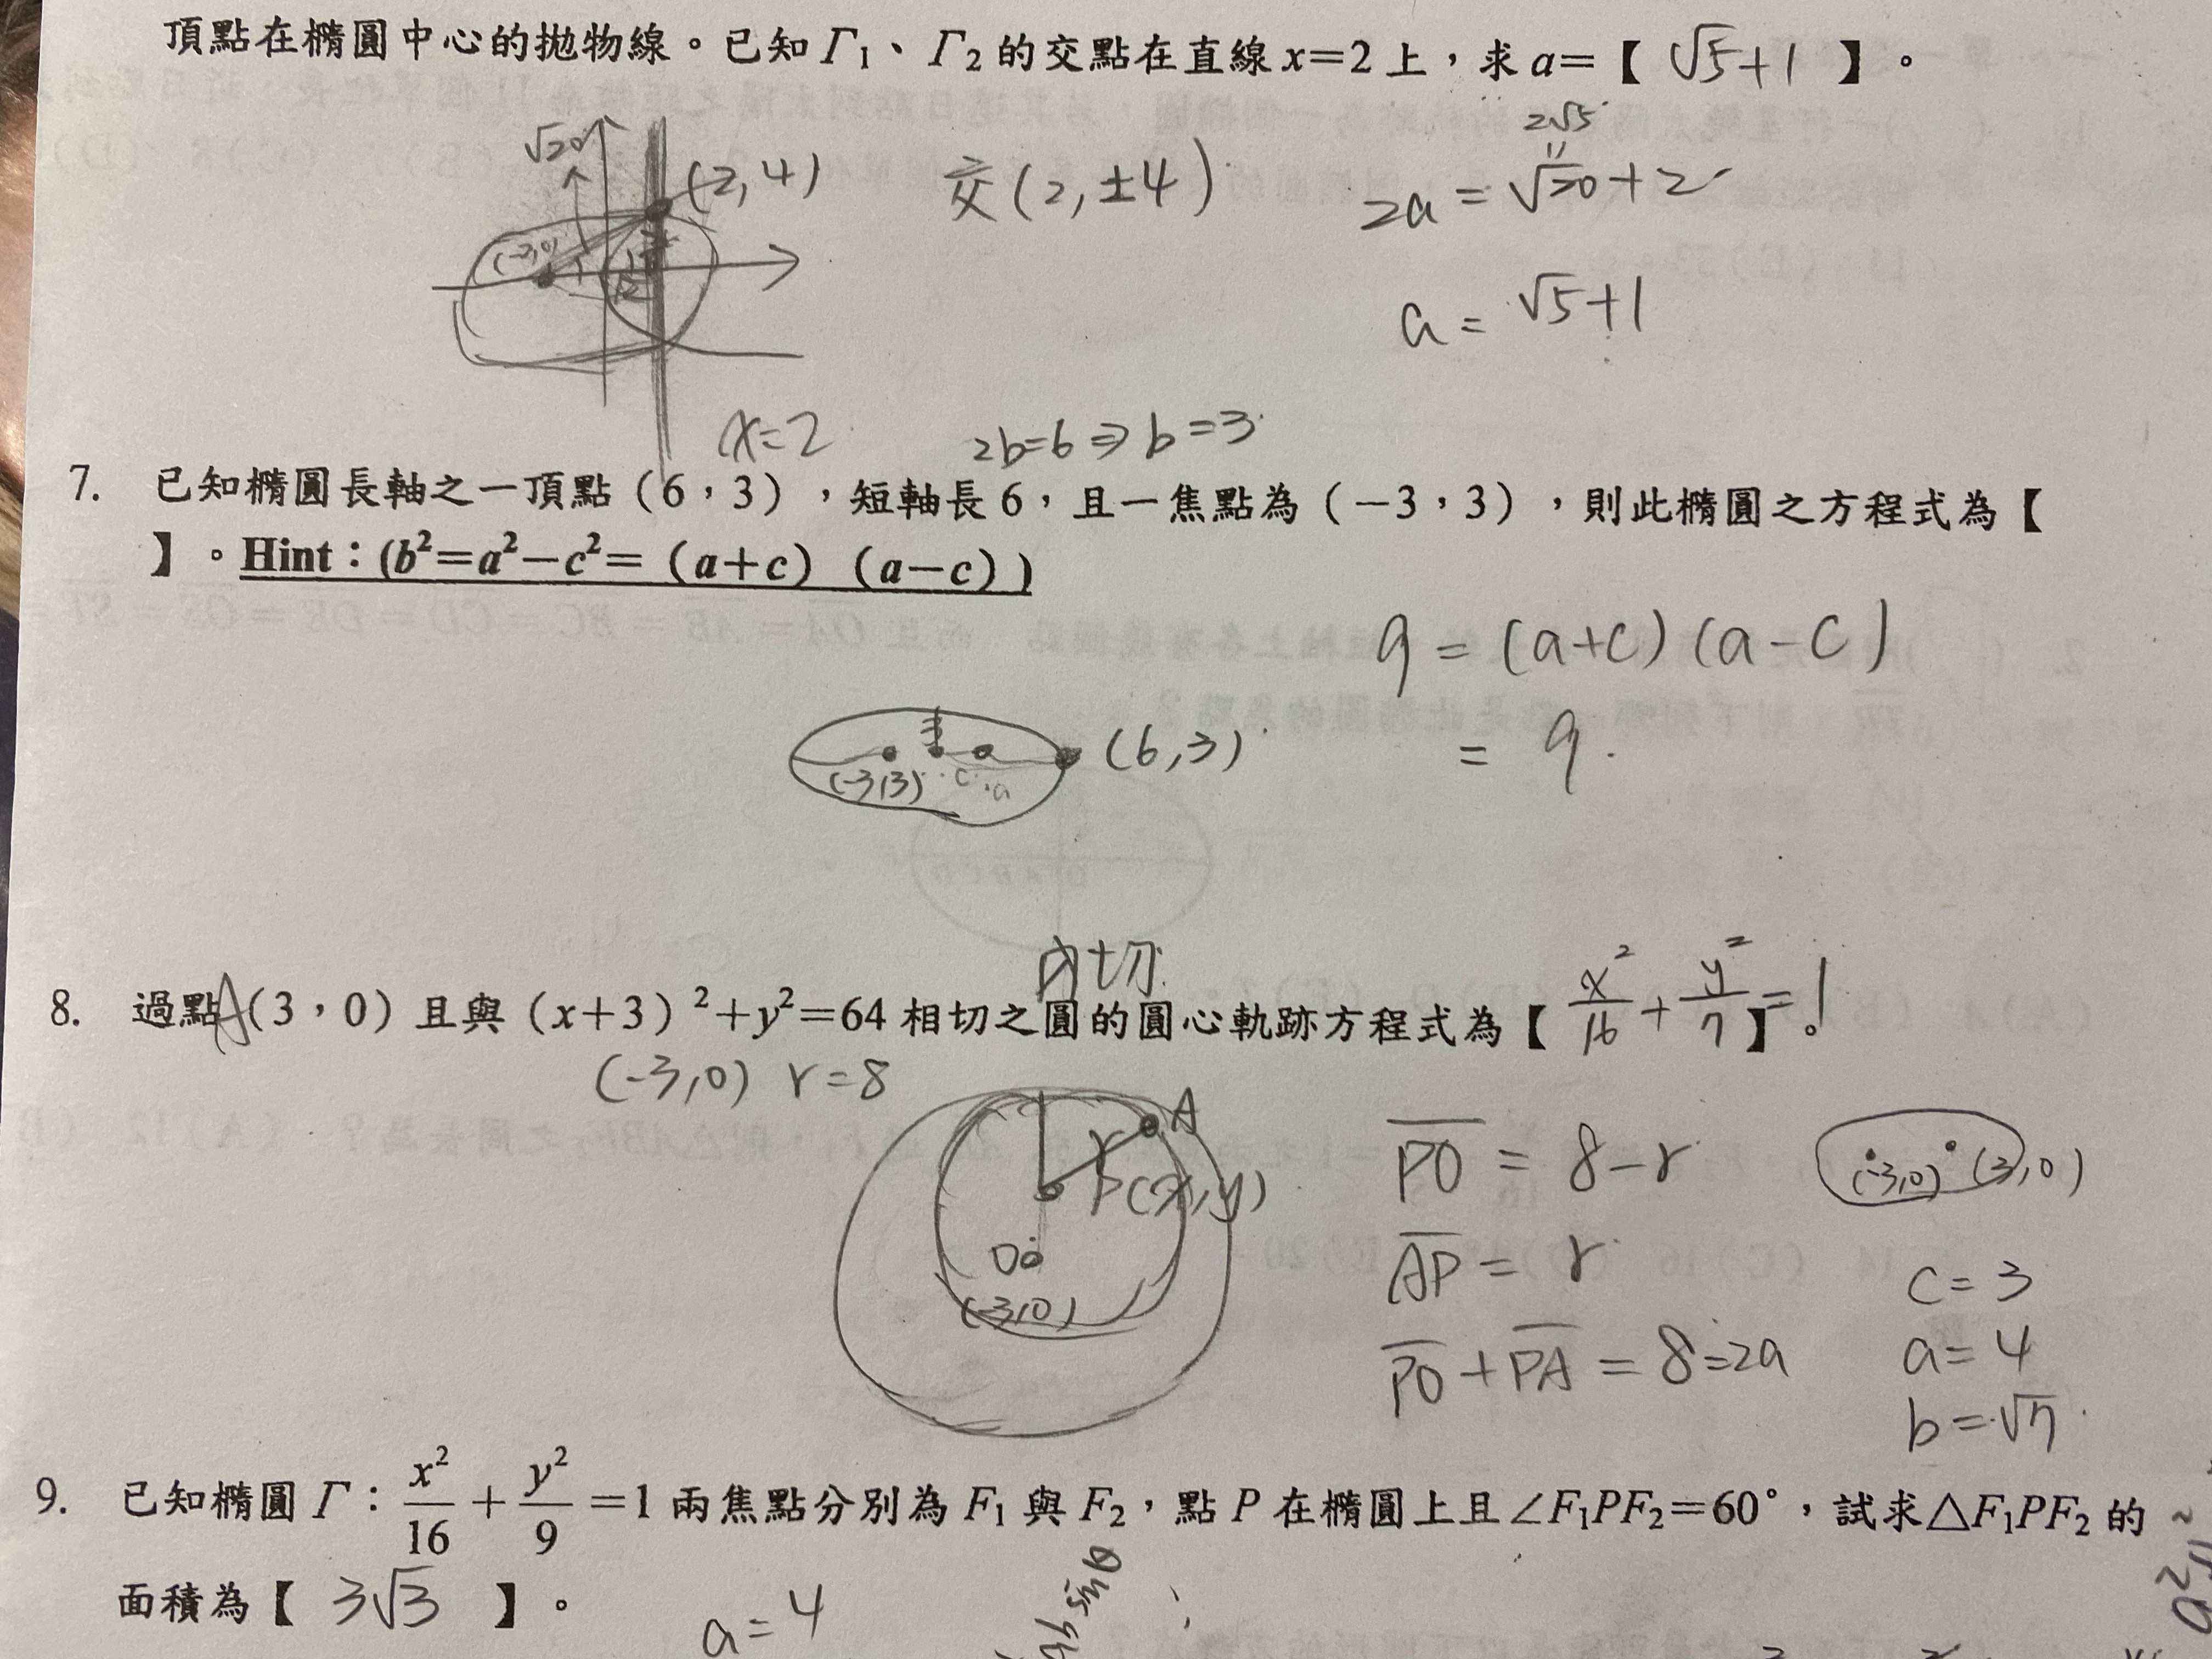 頂點在橢圓中心的拋物線。已知 Γ₁、Γ₂ 的交點在直線 x=2 上，求 a=【 √5+1 】。
√20
(2,4)
(-2,0)
交(2,±4)
2√5
2a = √20+2
a = √5+1
x=2
2b=6 ⇒ b=3
7. 已知橢圓長軸之一頂點（6，3），短軸長 6，且一焦點為（−3，3），則此橢圓之方程式為【
】。Hint：(b²=a²−c²=（a+c）（a−c）)
9 = (a+c)(a-c)
= 9
3
(-3,3)
c
a
(6,3)
內切
8. 過點A（3，0）且與（x+3）²+y²=64 相切之圓的圓心軌跡方程式為【 x²/16 + y²/7 = 1 】。
(-3,0) r=8
A
r
P(x,y)
O
(-3,0)
PO = 8-r
AP = r
PO + PA = 8=2a
(-3,0) (3,0)
c=3
a=4
b=√7
9. 已知橢圓 Γ：x²/16 + y²/9 =1 兩焦點分別為 F₁ 與 F₂，點 P 在橢圓上且∠F₁PF₂=60°，試求△F₁PF₂ 的
面積為【 3√3 】。
a=4